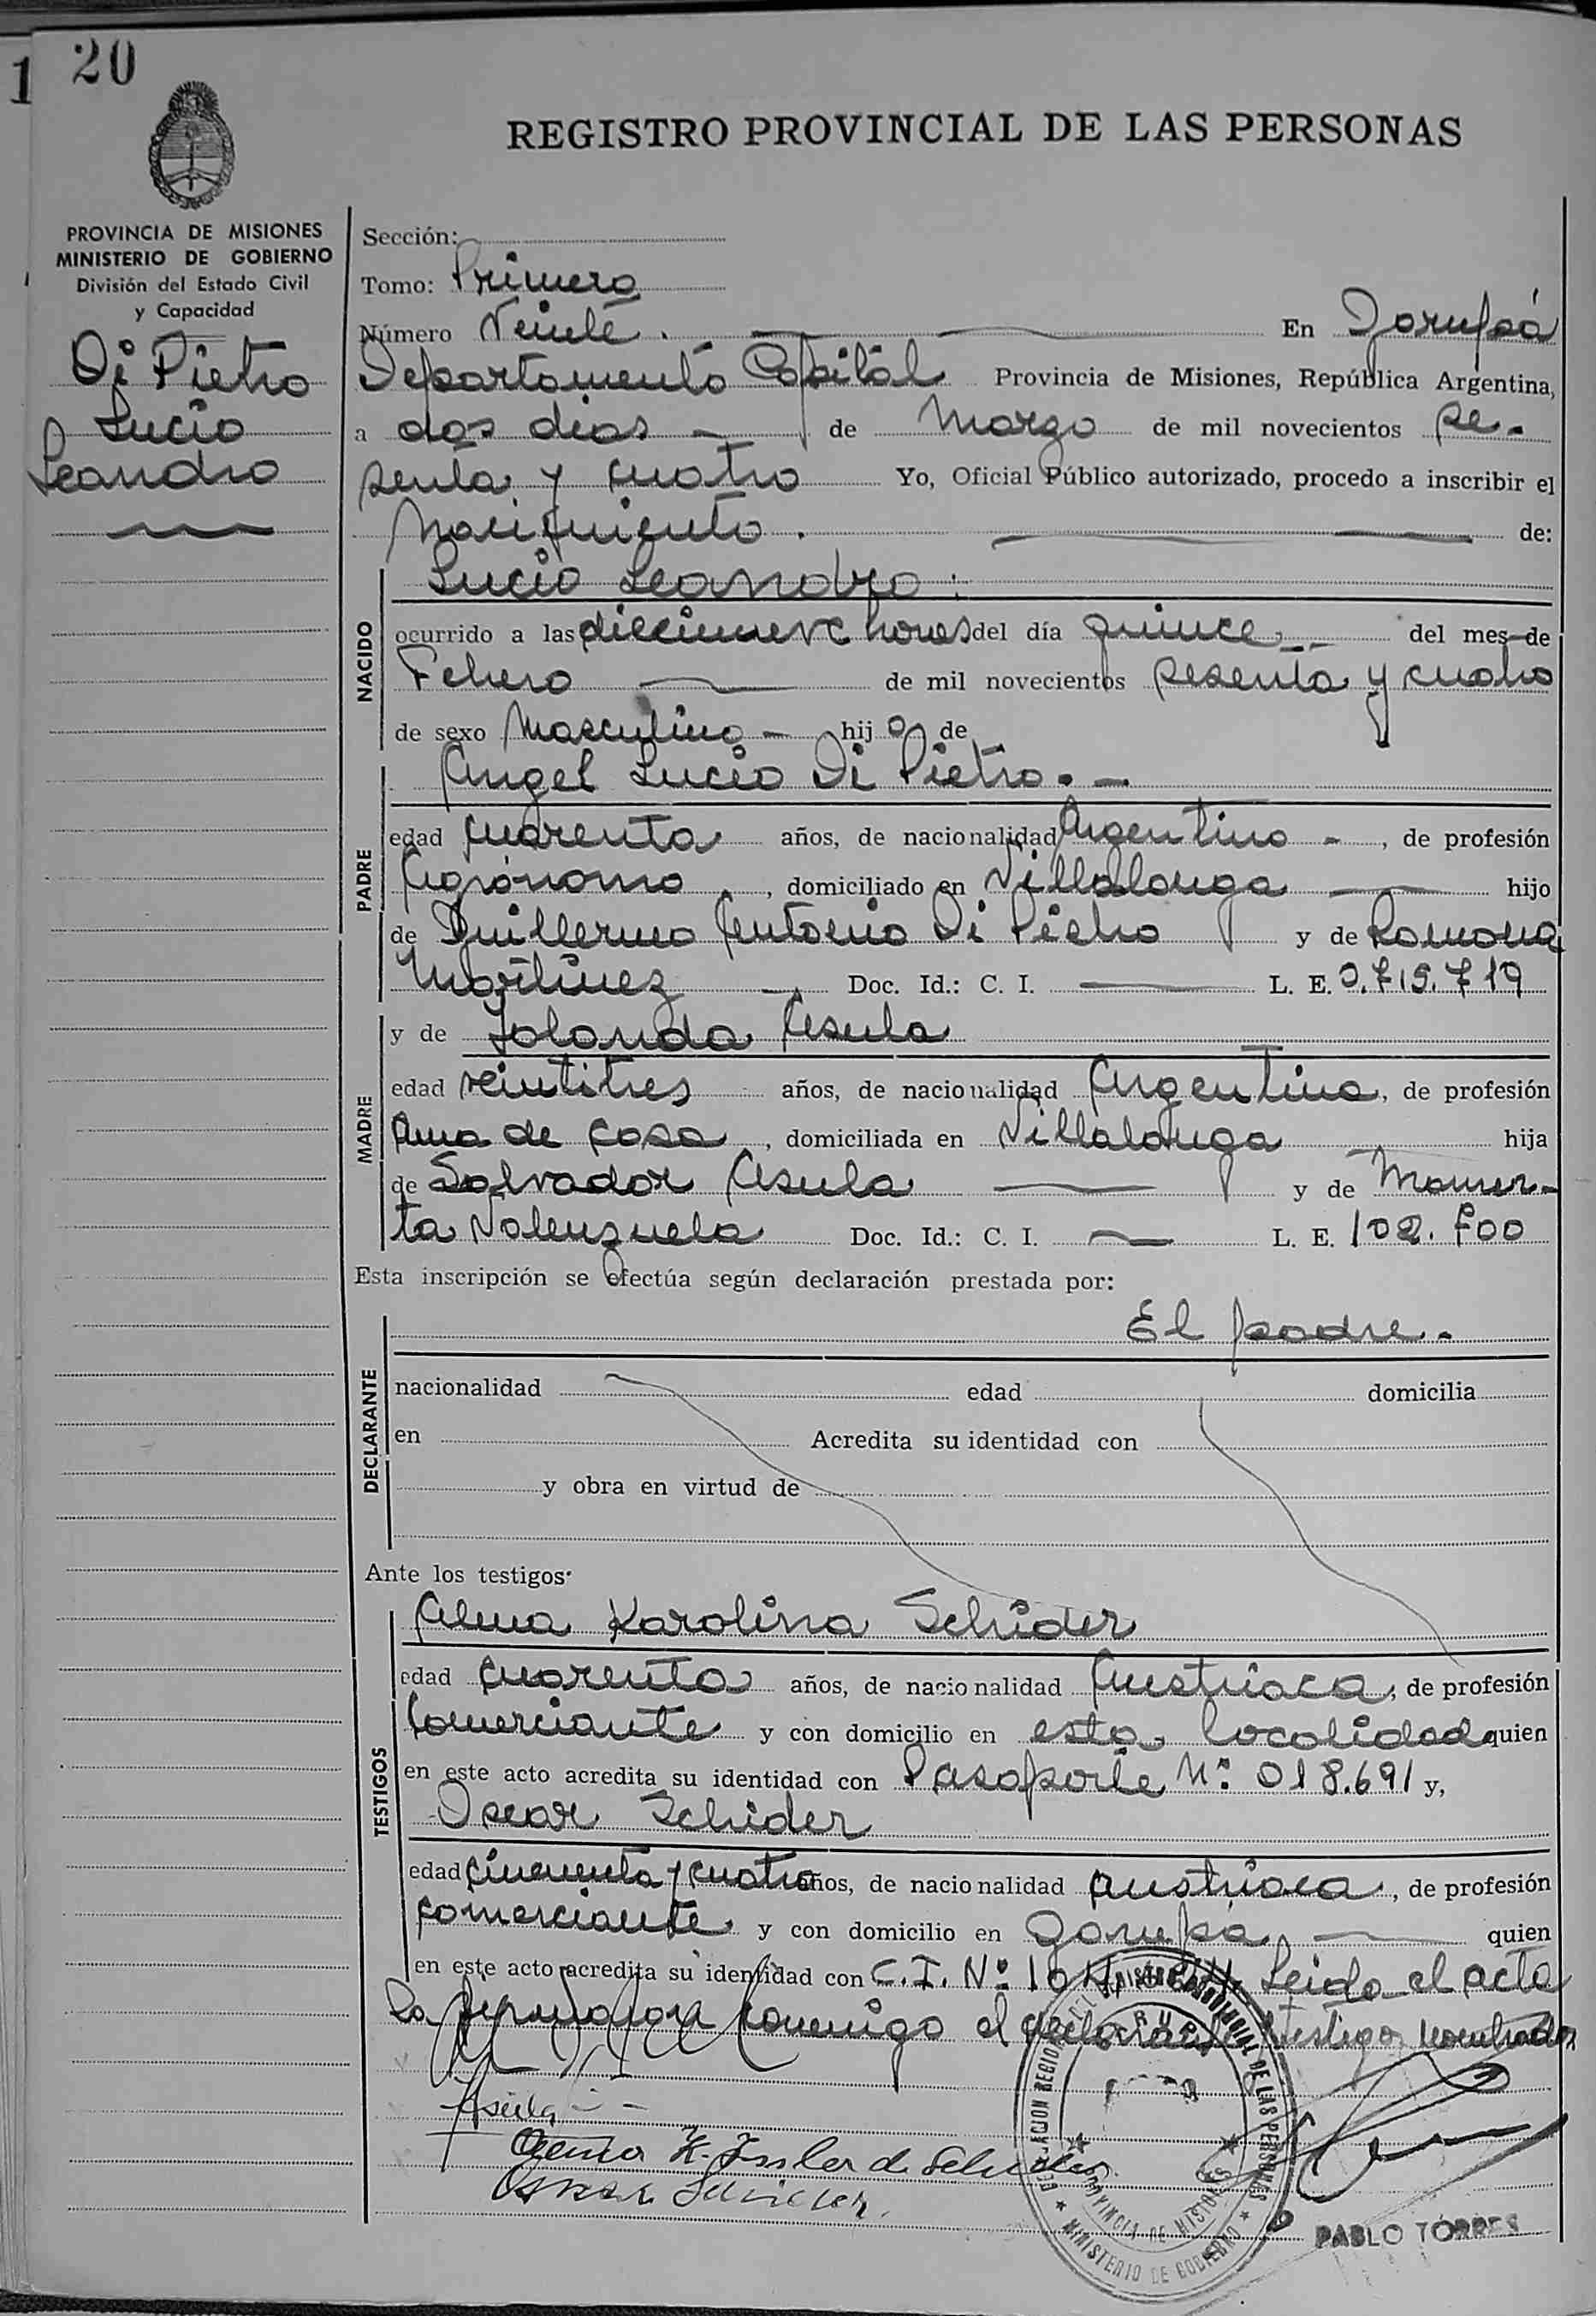 1 20
REGISTRO PROVINCIAL DE LAS PERSONAS
PROVINCIA DE MISIONES
MINISTERIO DE GOBIERNO
División del Estado Civil
y Capacidad
Di Pietro
Lucio
Leandro
Sección:
Tomo: Primero
Número Veinte. En Garupá
Departamento Capital Provincia de Misiones, República Argentina,
a dos dias de Marzo de mil novecientos se-
senta y cuatro Yo, Oficial Público autorizado, procedo a inscribir el
Nacimiento. de:
NACIDO
Lucio Leandro.
ocurrido a las diecinueve horas del día quince del mes de
Febrero de mil novecientos sesenta y cuatro
de sexo Masculino hijo de
PADRE
Angel Lucio Di Pietro.-
edad cuarenta años, de nacionalidad Argentino, de profesión
Agrónomo, domiciliado en Villalonga hijo
de Guillermo Antonio Di Pietro y de Romona
Martinez Doc. Id.: C. I. L. E. 0.715.719
MADRE
y de Iolanda Asula
edad veintitres años, de nacionalidad Argentina, de profesión
Ama de casa, domiciliada en Villalonga hija
de Salvador Asula y de Mamer-
ta Valenzuela Doc. Id.: C. I. L. E. 102.700
Esta inscripción se efectúa según declaración prestada por:
DECLARANTE
El padre.
nacionalidad edad domicilia
en Acredita su identidad con
y obra en virtud de
Ante los testigos:
TESTIGOS
Alma Karolina Schider
edad cuarenta años, de nacionalidad Austriaca, de profesión
Comerciante y con domicilio en esta localidad quien
en este acto acredita su identidad con Pasaporte Nº 018.691 y,
Oscar Schider
edad cincuenta y cuatro años, de nacionalidad austriaca, de profesión
comerciante y con domicilio en Garupá quien
en este acto acredita su identidad con C.I. Nº Leida el acta
la firman para conmigo el declarante testigos nombrados
Asula
Alma K. de Schider
Oskar Schider.
PROVINCIAL DE LAS PERSONAS
PROVINCIA DE MISIONES
MINISTERIO DE GOBIERNO
PABLO TORRES